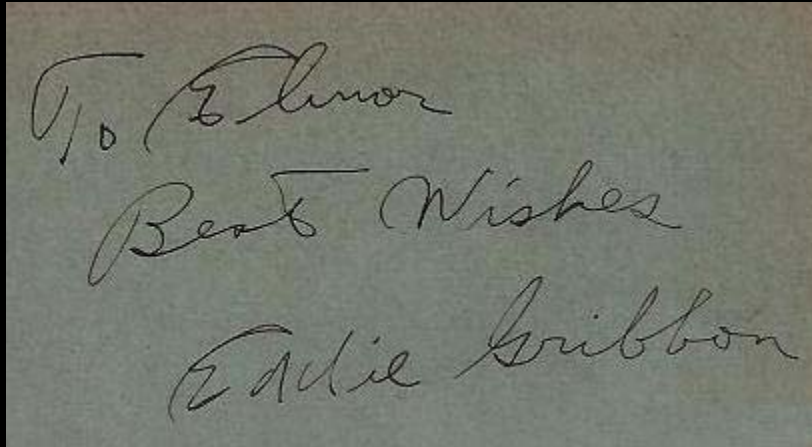 To Elinor
Best Wishes
Eddie Gribbon